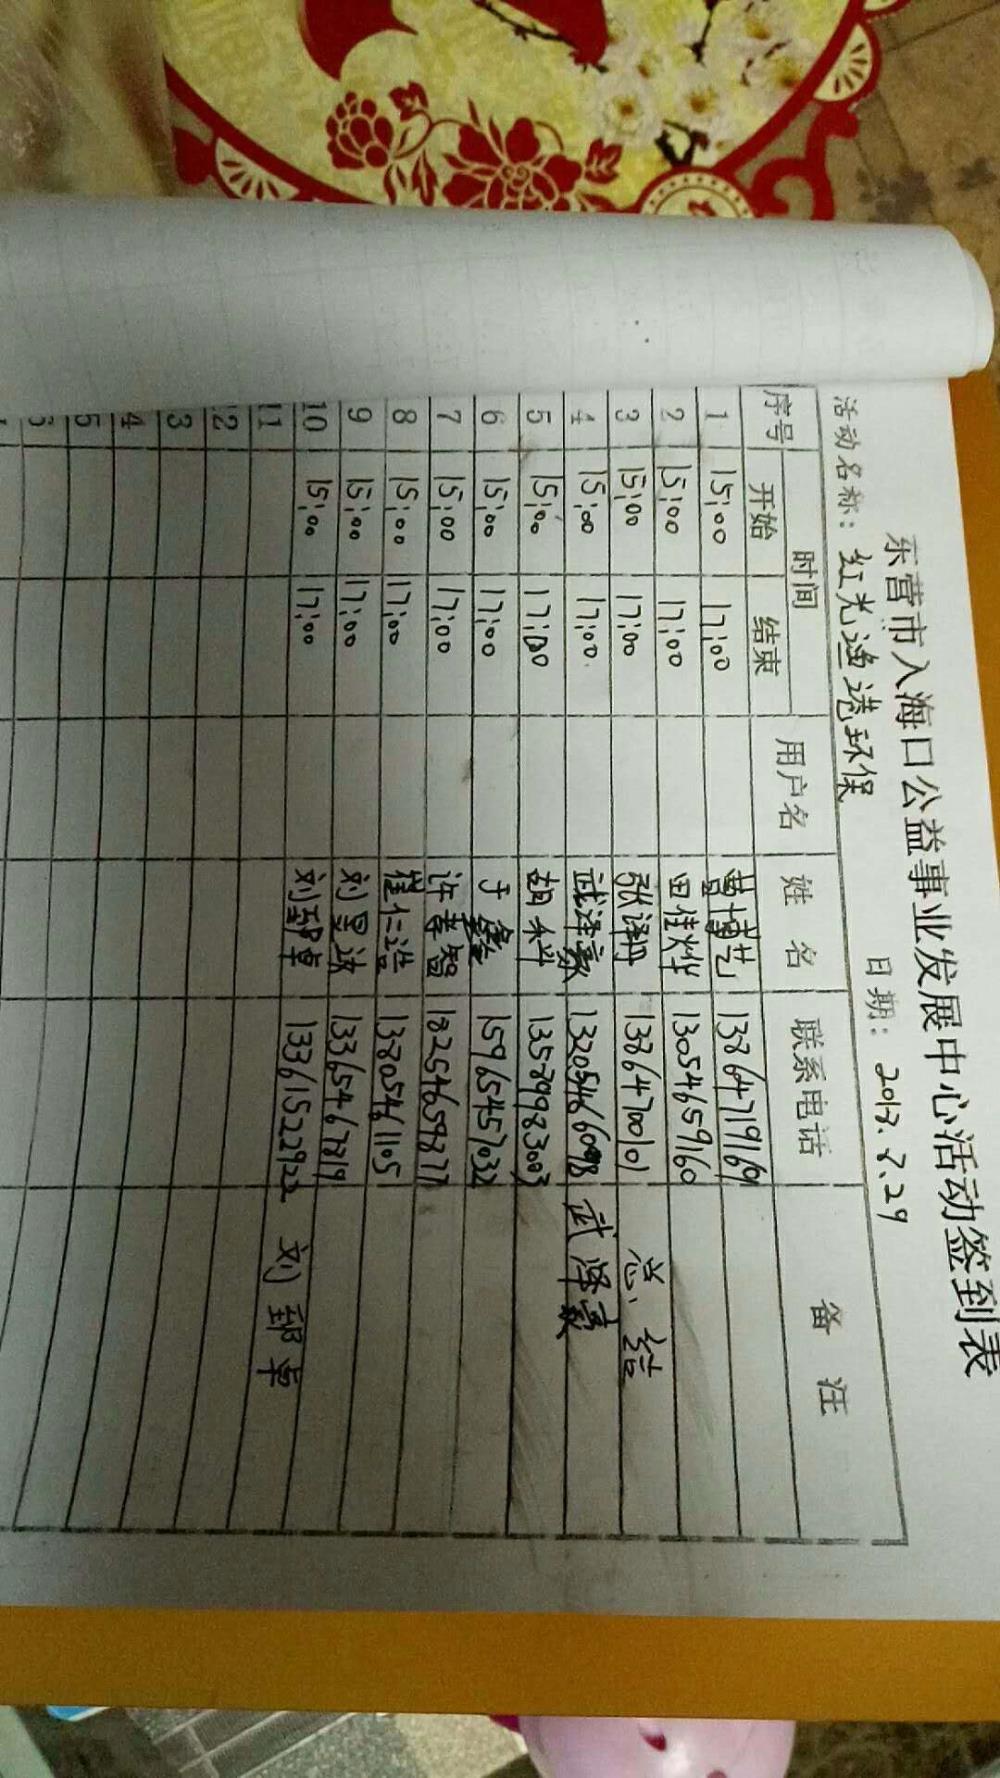 东营市入海口公益事业发展中心活动签到表
活动名称：红光渔港环保 日期：2017.7.29
序号 时间 用户名 姓名 联系电话 备注
开始 结束
1 15:00 17:00 曹博艺 13864719169
2 15:00 17:00 田佳烨 13054659160
3 15:00 17:00 张译丹 13864700101 总结
4 15:00 17:00 武泽豪 13205466098 武泽豪
5 15:00 17:00 胡 13589983003
6 15:00 17:00 于鑫 15965457032
7 15:00 17:00 许孝智 18254659877
8 15:00 17:00 崔仁浩 13805461105
9 15:00 17:00 刘昱达 13365467819
10 15:00 17:00 刘郅卓 13361522922 刘郅卓
11
12
3
4
5